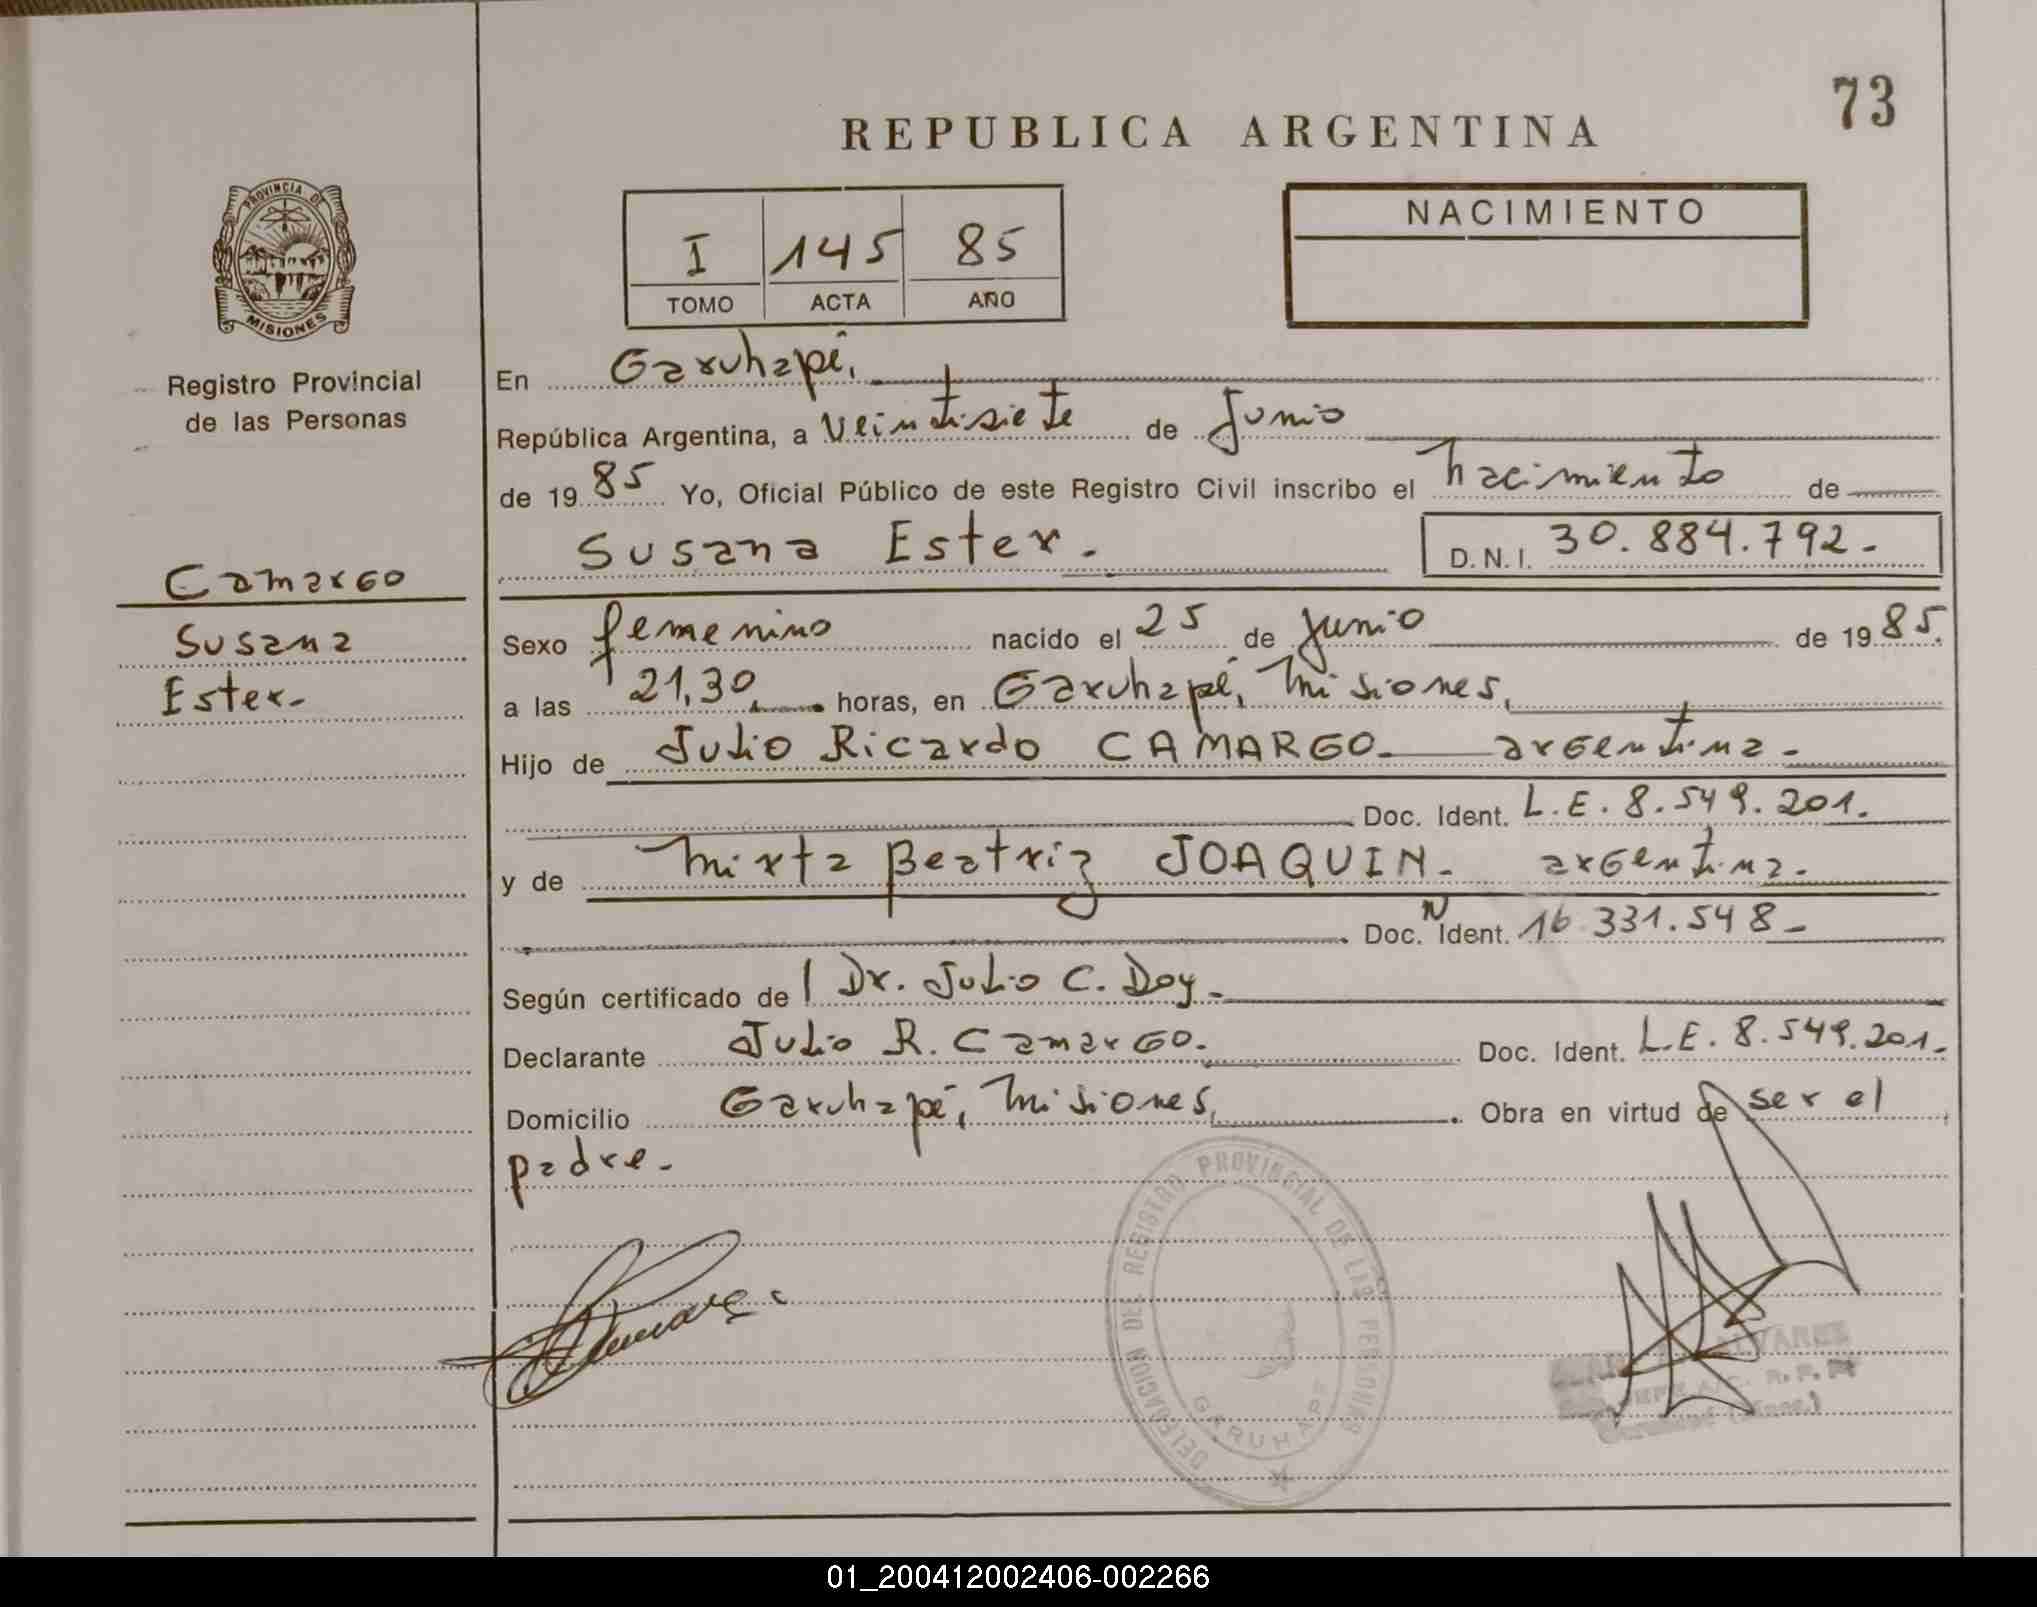 73
REPUBLICA ARGENTINA
PROVINCIA DE
MISIONES
I 145 85
TOMO ACTA AÑO
NACIMIENTO
Registro Provincial
de las Personas
En Garuhapé,
República Argentina, a veintisiete de Junio
de 1985 Yo, Oficial Público de este Registro Civil inscribo el nacimiento de
Susana Ester.
D.N.I. 30.884.792.-
Camargo
Susana
Ester.-
Sexo femenino nacido el 25 de junio de 1985.
a las 21,30 horas, en Garuhapé, Misiones,
Hijo de Julio Ricardo CAMARGO.- argentina.-
Doc. Ident. L.E. 8.549.201.
y de Mirta Beatriz JOAQUIN.- argentina.-
Doc. N Ident. 16.331.548.-
Según certificado de l Dr. Julio C. Doy.-
Declarante Julio R. Camargo.- Doc. Ident. L.E. 8.549.201.-
Domicilio Garuhapé, Misiones, Obra en virtud de ser el
padre.-
DELEGACION DEL REGISTRO PROVINCIAL DE LAS PERSONAS
GARUHAPE
ALVAREZ
01_200412002406-002266